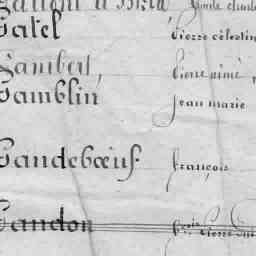 Gatel Pierre célestin
Gambert, Pierre aimé
Gamblin Jean marie
Gandebœuf François
Gandon Pierre